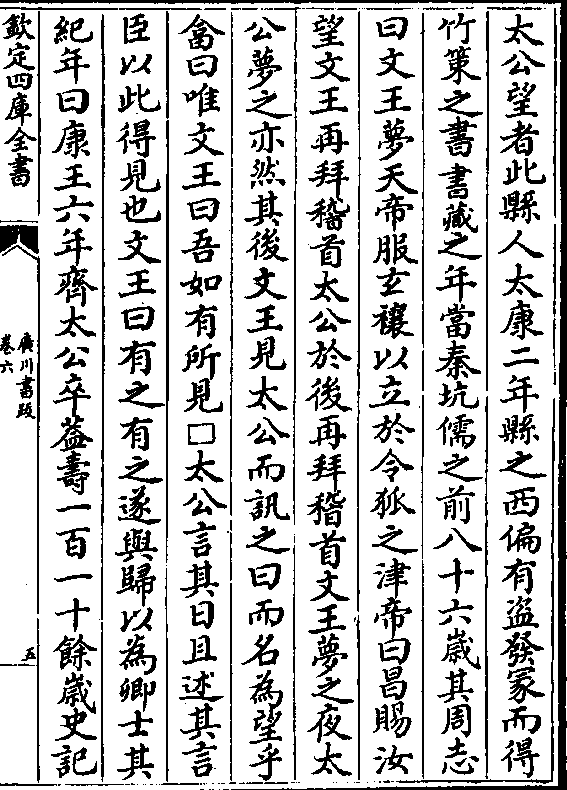 太公望者此縣人太康二年縣之西偏有盗發冢而得
竹策之書書藏之年當秦坑儒之前八十六歳其周志
曰文王夢天帝服玄禳以立於令狐之津帝曰昌賜汝
望文王再拜稽首太公於後再拜稽首文王夢之夜太
公夢之亦然其後文王見太公而訊之曰而名為望乎
畣曰唯文王曰吾如有所見□太公言其日且述其言
臣以此得見也文王曰有之有之遂與歸以為卿士其
紀年曰康王六年齊太公卒葢壽一百一十餘歳史記
欽定四庫全書
廣川書跋
卷六
五